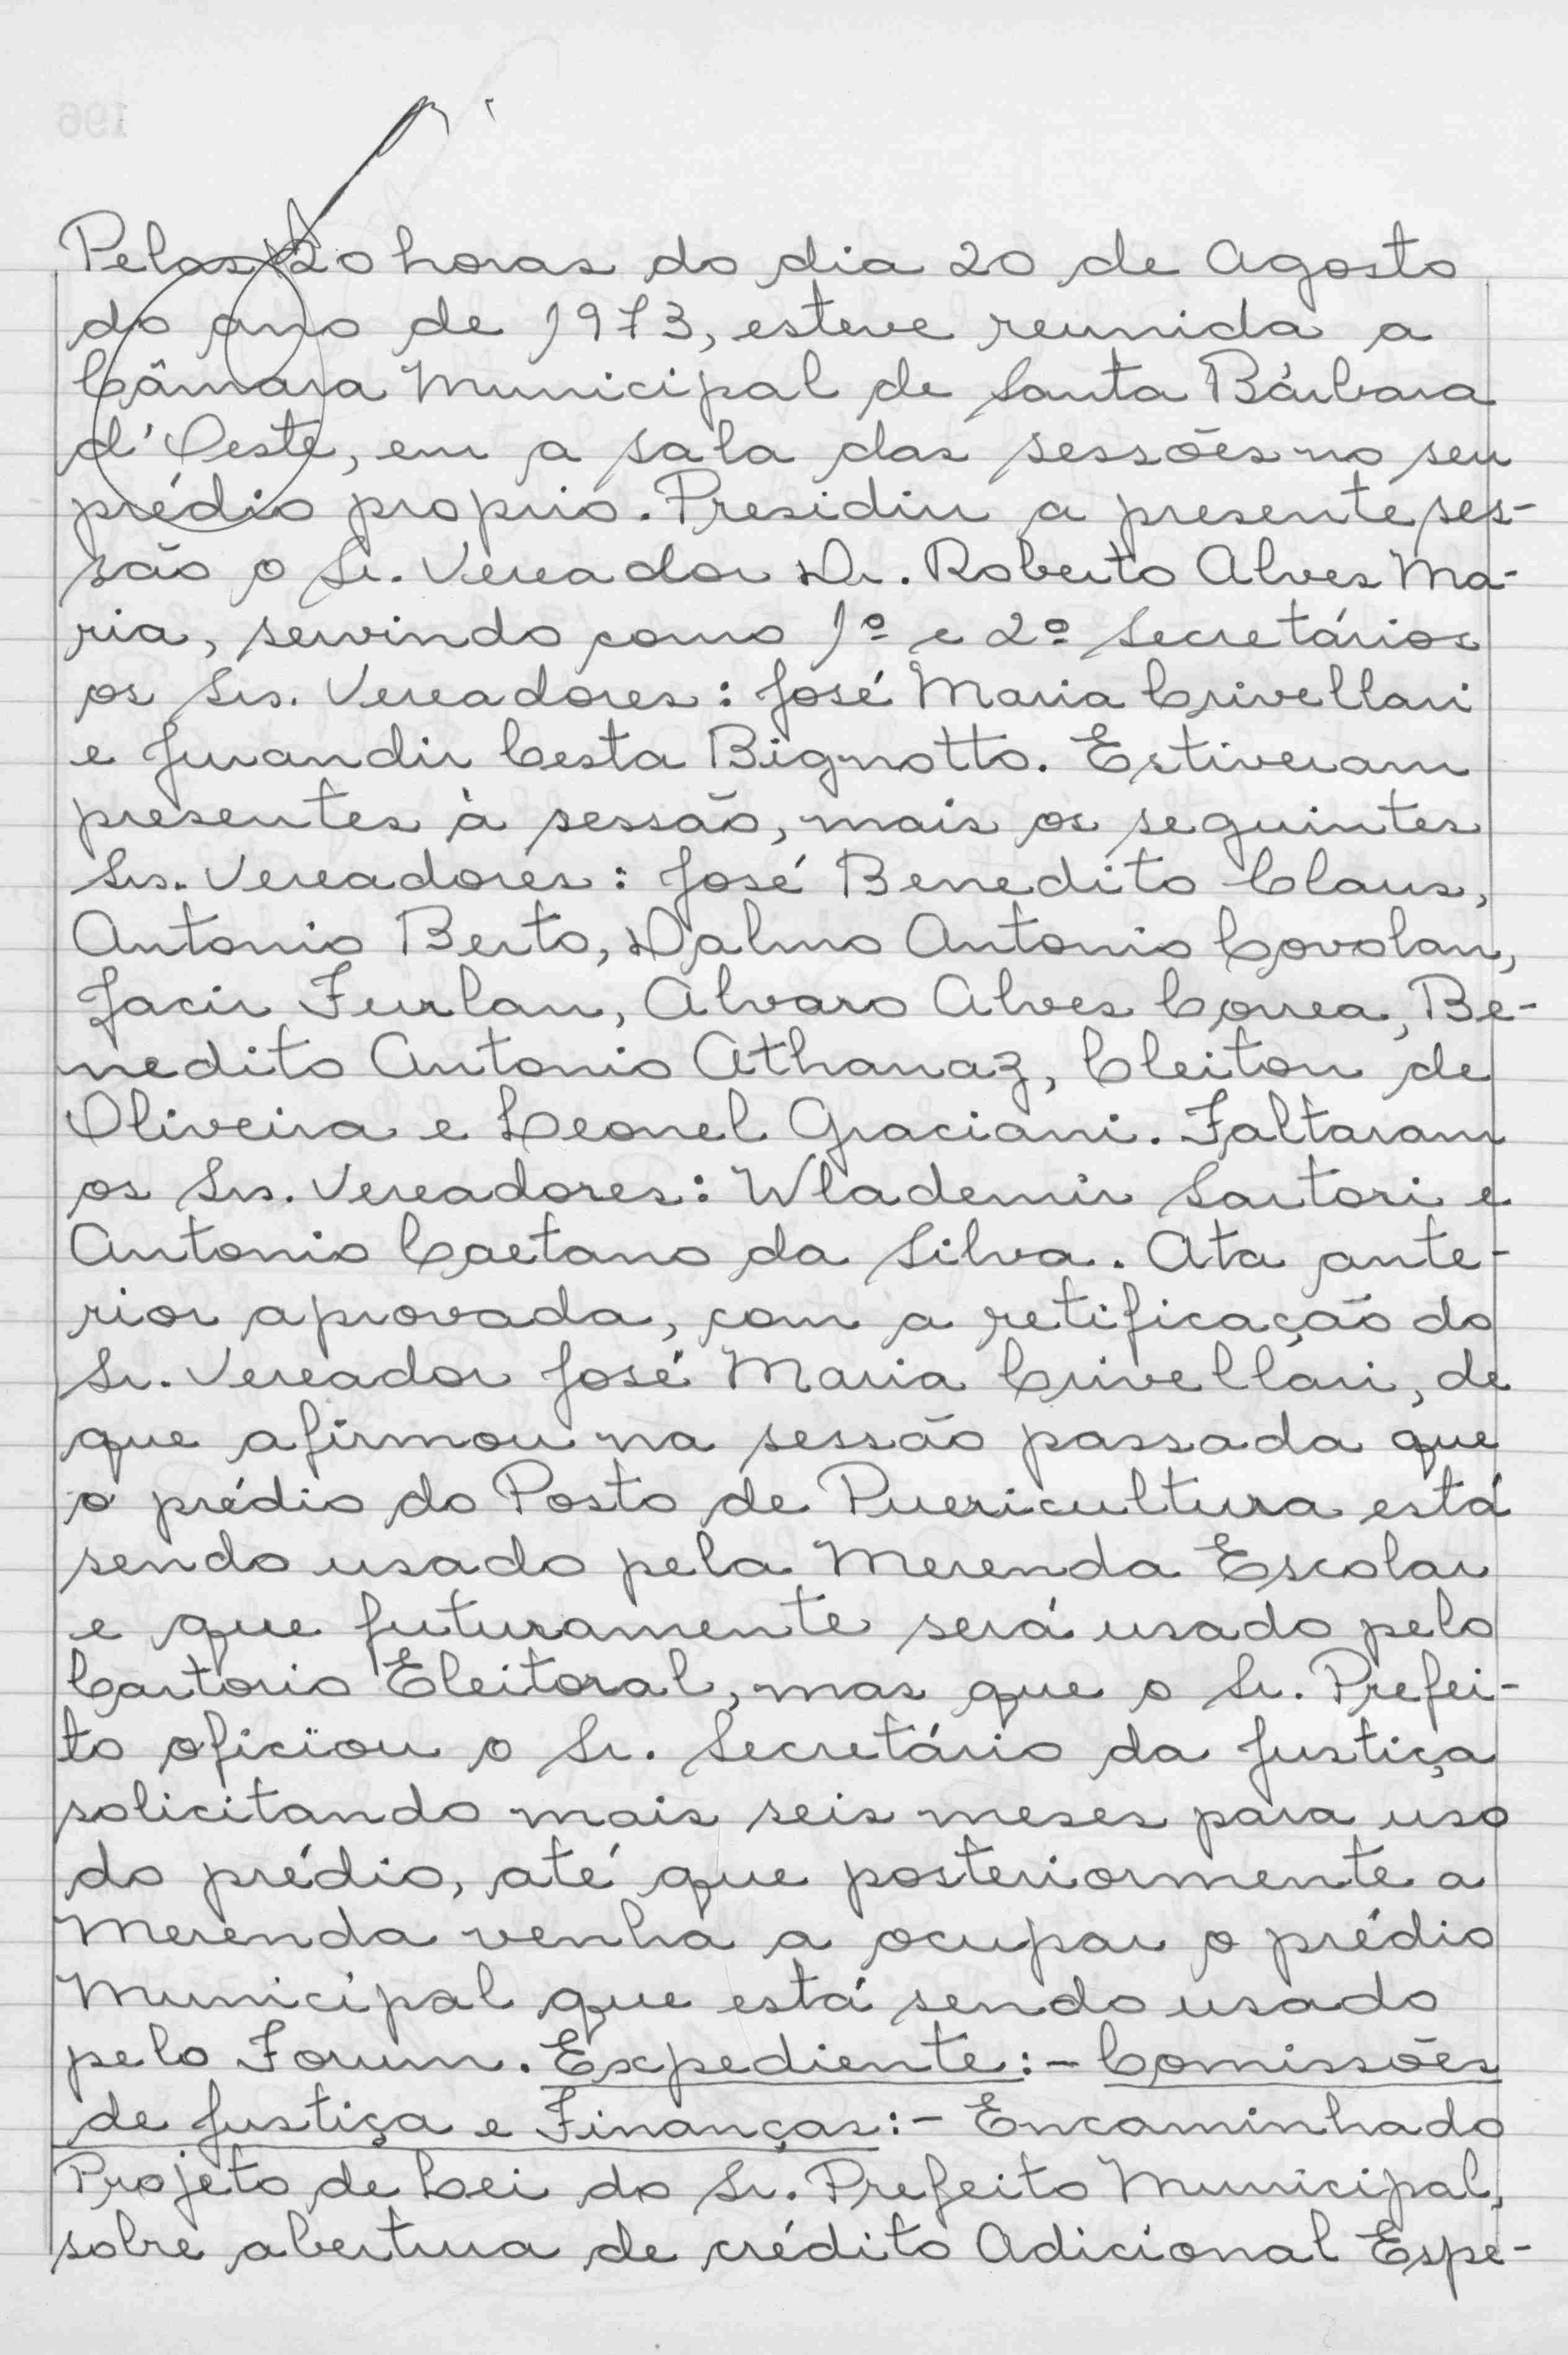 Pelas 20 horas do dia 20 de Agosto
do ano de 1973, esteve reunida a
Câmara Municipal de Santa Bárbara
d'Oeste, em a sala das sessões no seu
prédio proprio. Presidiu a presente ses-
são o Sr. Vereador Dr. Roberto Alves Ma-
ria, servindo como 1º e 2º Secretários
os Srs. Vereadores: José Maria Crivellari
e Jurandir Cesta Bignotto. Estiveram
presentes à sessão, mais os seguintes
Srs. Vereadores: José Benedito Claus,
Antonio Berto, Dalmo Antonio Covolan,
Jacir Furlan, Alvaro Alves Correa, Be-
nedito Antonio Athanaz, Cleiton de
Oliveira e Leonel Graciani. Faltaram
os Srs. Vereadores: Wlademir Sartori e
Antonio Caetano da Silva. Ata ante-
rior aprovada, com a retificação do
Sr. Vereador José Maria Crivellari, de
que afirmou na sessão passada que
o prédio do Posto de Puericultura está
sendo usado pela Merenda Escolar
e que futuramente será usado pelo
Cartorio Eleitoral, mas que o Sr. Prefei-
to oficiou o Sr. Secretário da Justiça
solicitando mais seis meses para uso
do prédio, até que posteriormente a
Merenda venha a ocupar o prédio
Municipal que está sendo usado
pelo Forum. Expediente:- Comissões
de Justiça e Finanças:- Encaminhado
Projeto de Lei do Sr. Prefeito Municipal,
sobre abertura de crédito Adicional Espe-